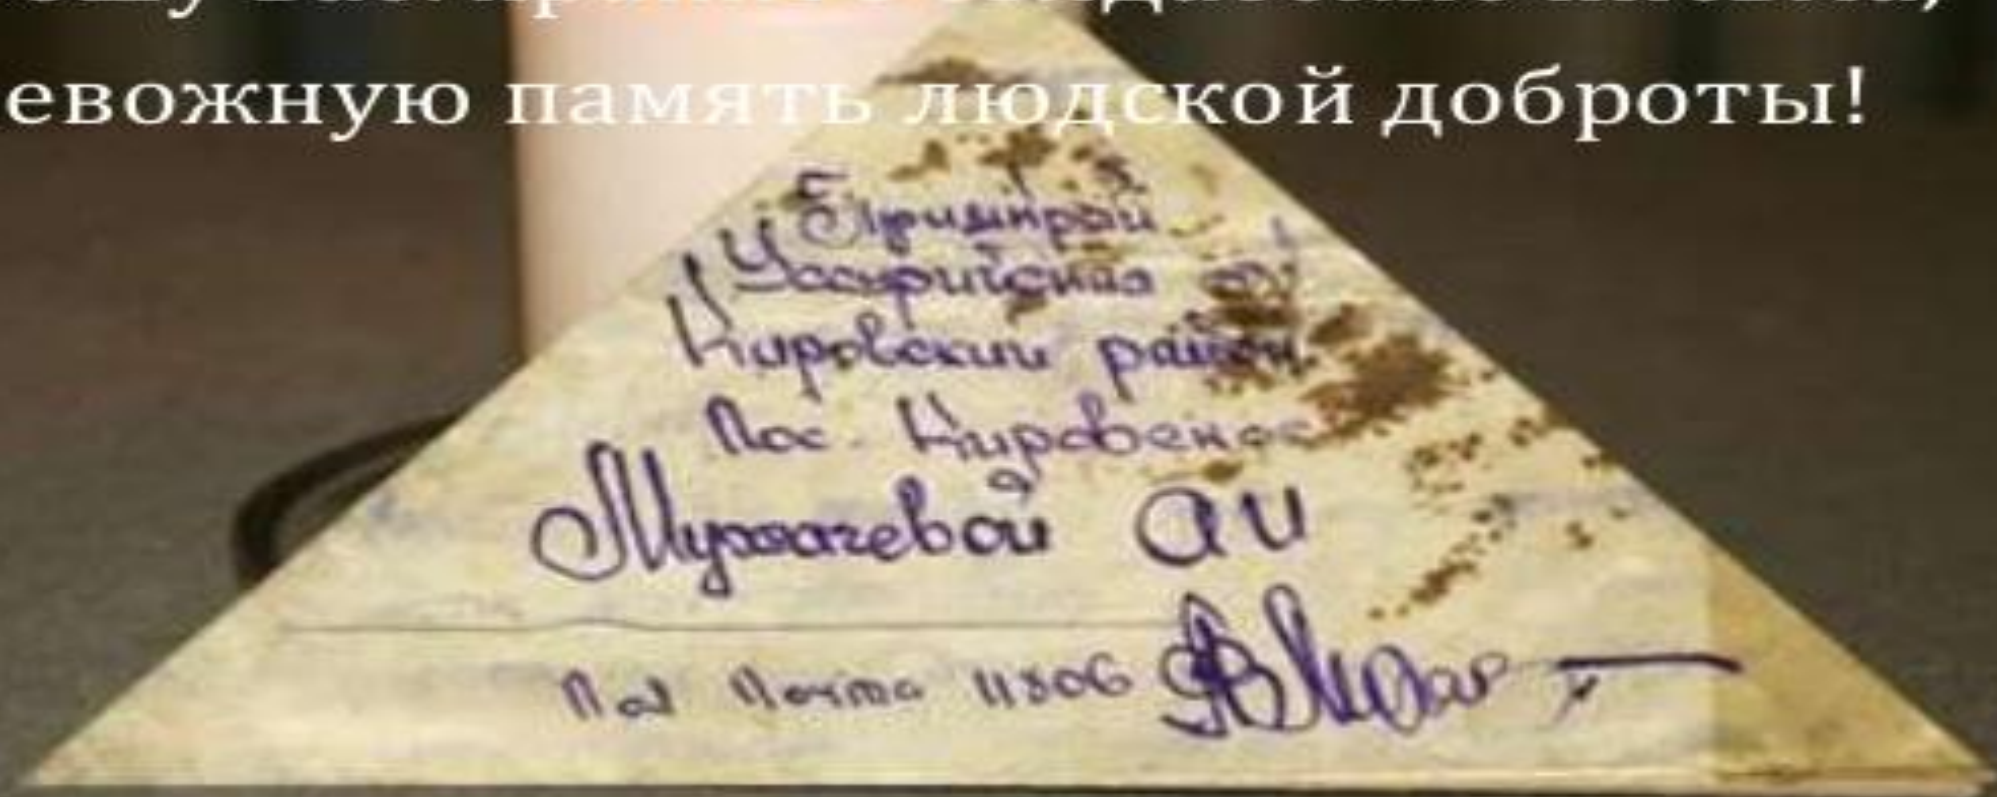 евожную память людской доброты!
Примкрай
Уссурийская
Кировский район
Пос. Кировское
Мухачевой АИ
Пол Почта 11806